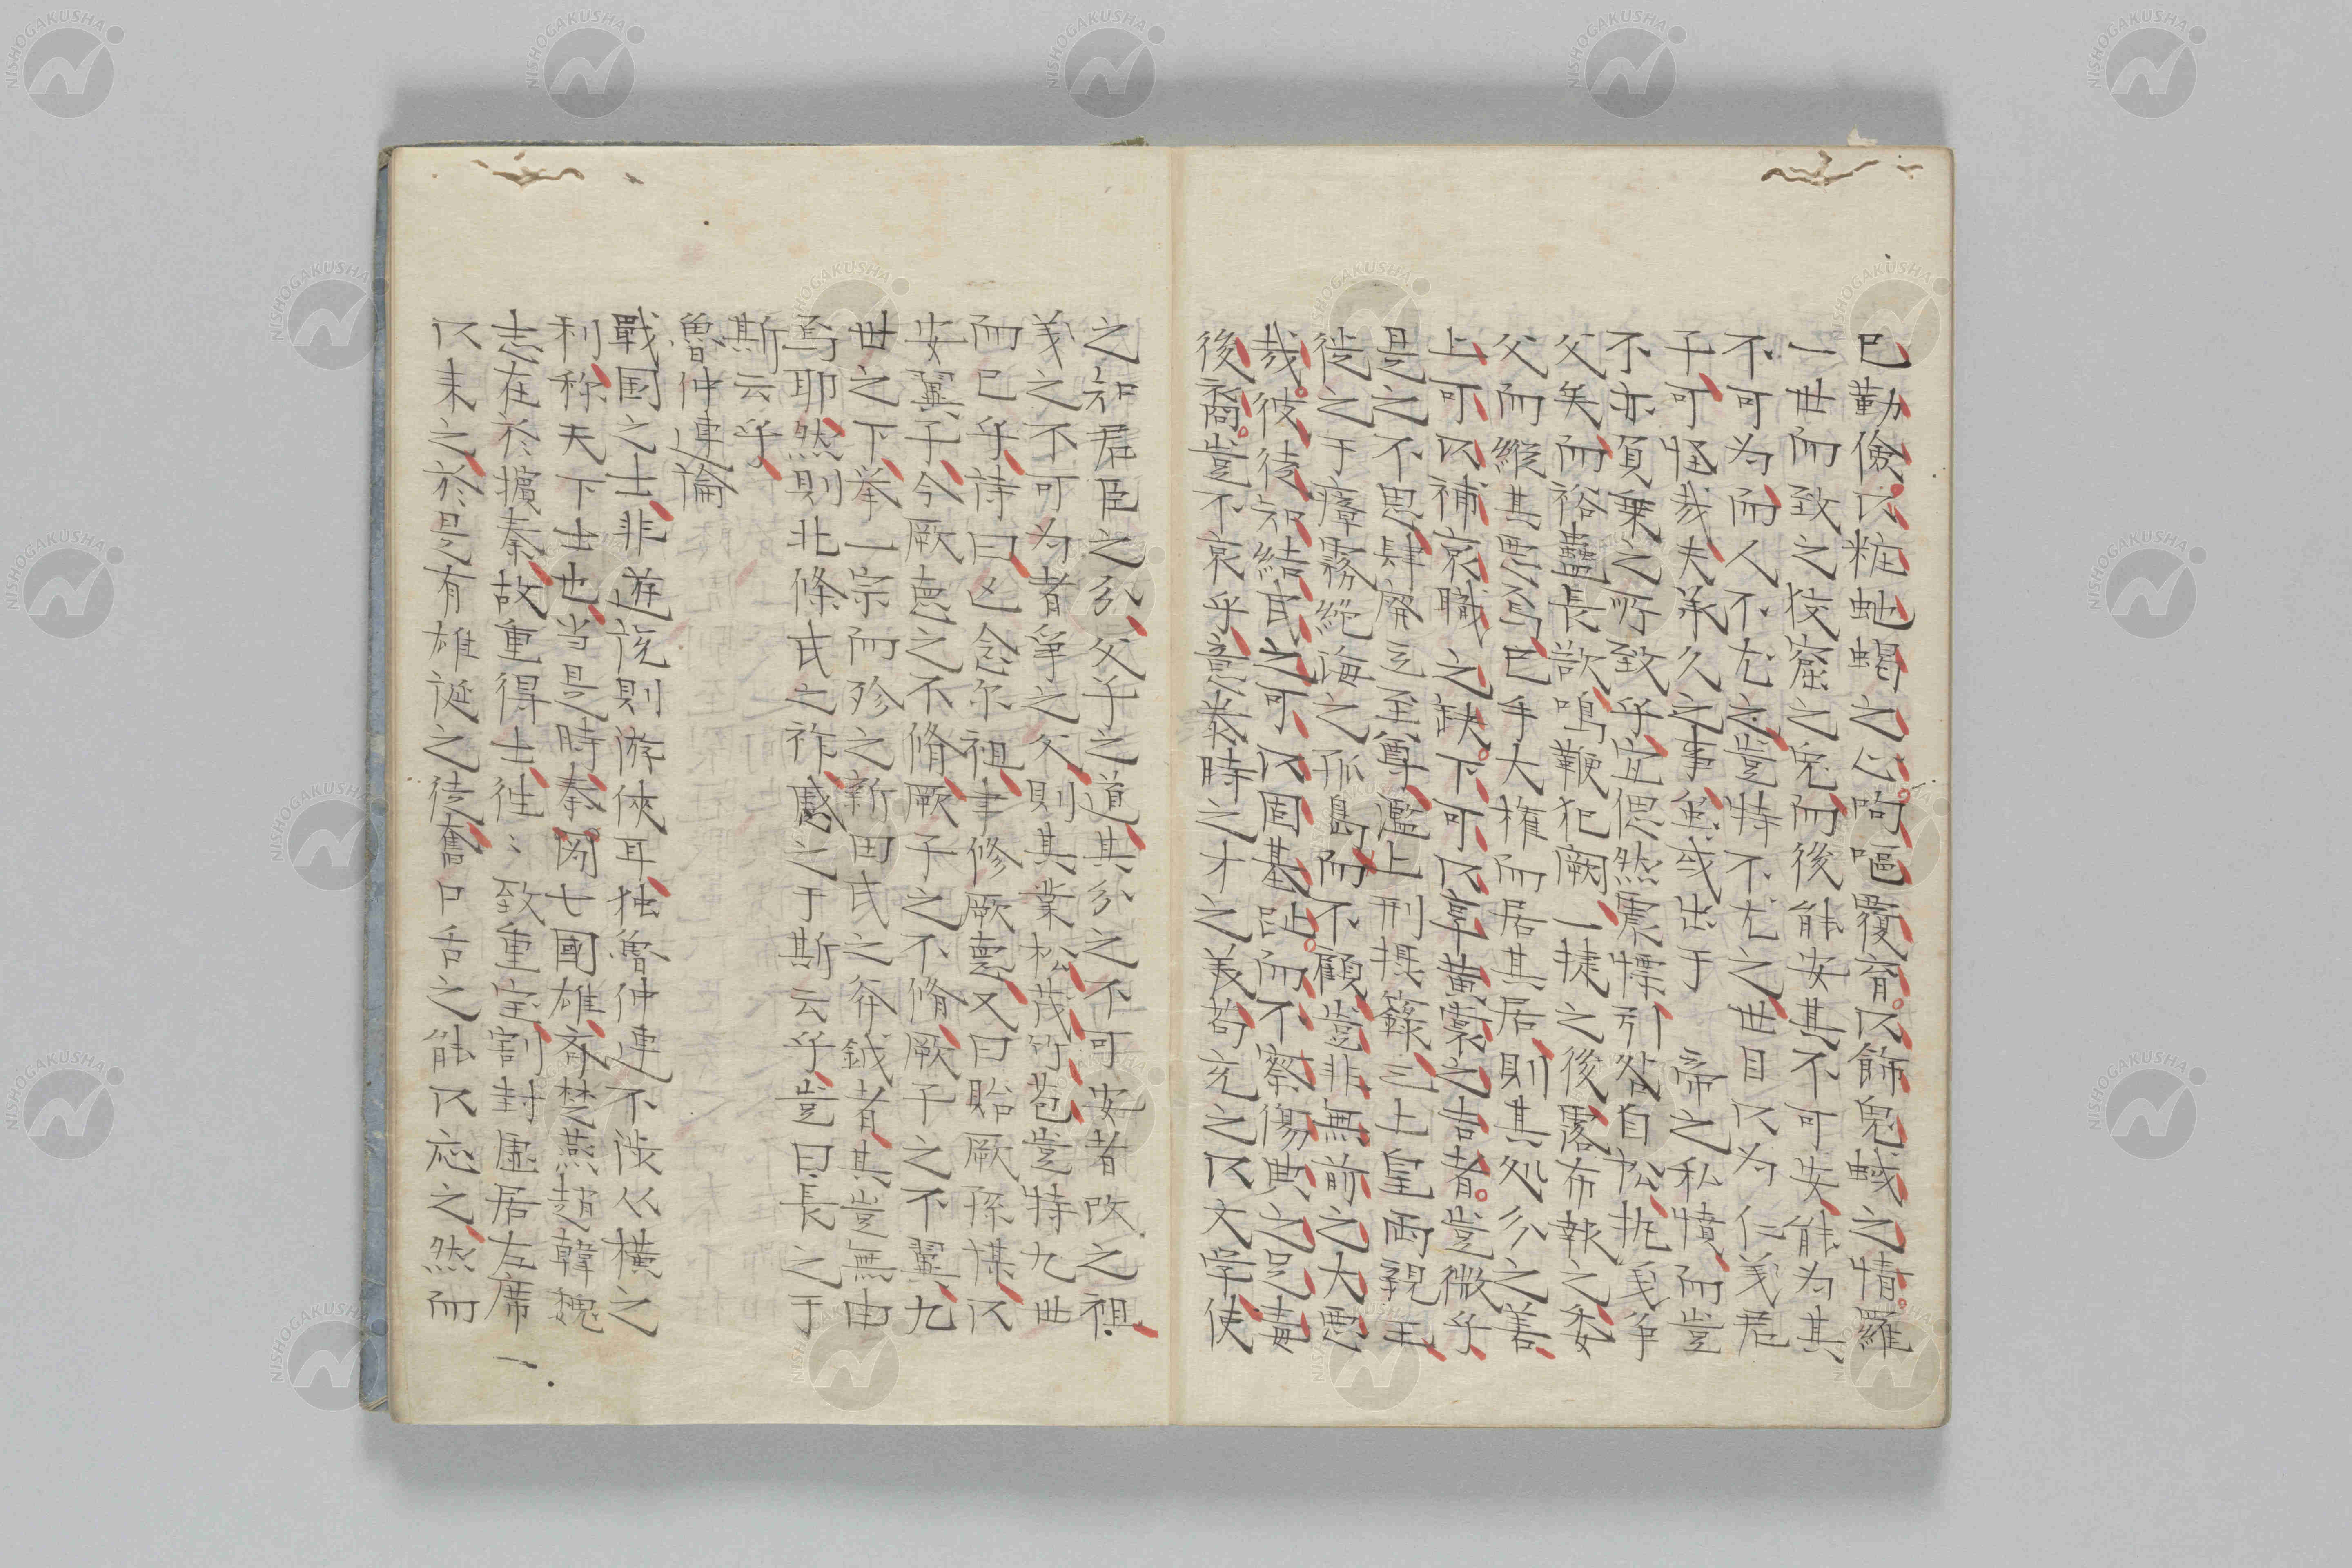 已勤儉以粧虵蝎之心呴嘔覆育以飾鬼蜮之情羅
一世而致之狡窟之兔而後能安其不可安能为其
不可为而人不尤之豈特不尤之世目以为仁義君
子可怪哉夫承久之事虽或出于 帝之私憤而豈
不亦負乗之所致乎宜偲然震慄引咎自
父矣而裕蠱長欲鳴鞭犯闕一捷之後露布報之委
父而縱其悪焉已手大権而居其居則其処分之善
上可以補袞職之缺下可以享黄裳之吉者豈微乎
是之不思肆廃立至尊濫上刑摂籙三上皇両親王
徙之于瘴霧絶海之孤島而不顧豈非無前之大悪
哉彼徒知結民之可以固基趾而不察傷典之足毒
後裔豈不哀乎意泰時之才之美苟充之以文学使
之知君臣之分父子之道其分之不可安者改之祖
義之不可为者争之父則其業松茂竹苞豈特九世
而已乎詩曰亾念尔祖聿修厥徳又曰貽厥孫謀以
安翼子今厥徳之不脩厥子之不脩厥子之不翼九
世之下挙一宗而殄之新田氏之斧鉞者其豈無由
焉耶然則北條氏之祚慼之于斯云乎豈曰長之于
斯云乎
魯仲連論
戰国之士非遊説則游俠耳独魯仲連不渉从横之
利称天下士也当是時秦罔七國雄斉楚燕趙韓魏
志在於擯秦故重得士徃〻致重宝割封虚居左席
以来之於是有雄誕之徒奮口舌之能以応之然而